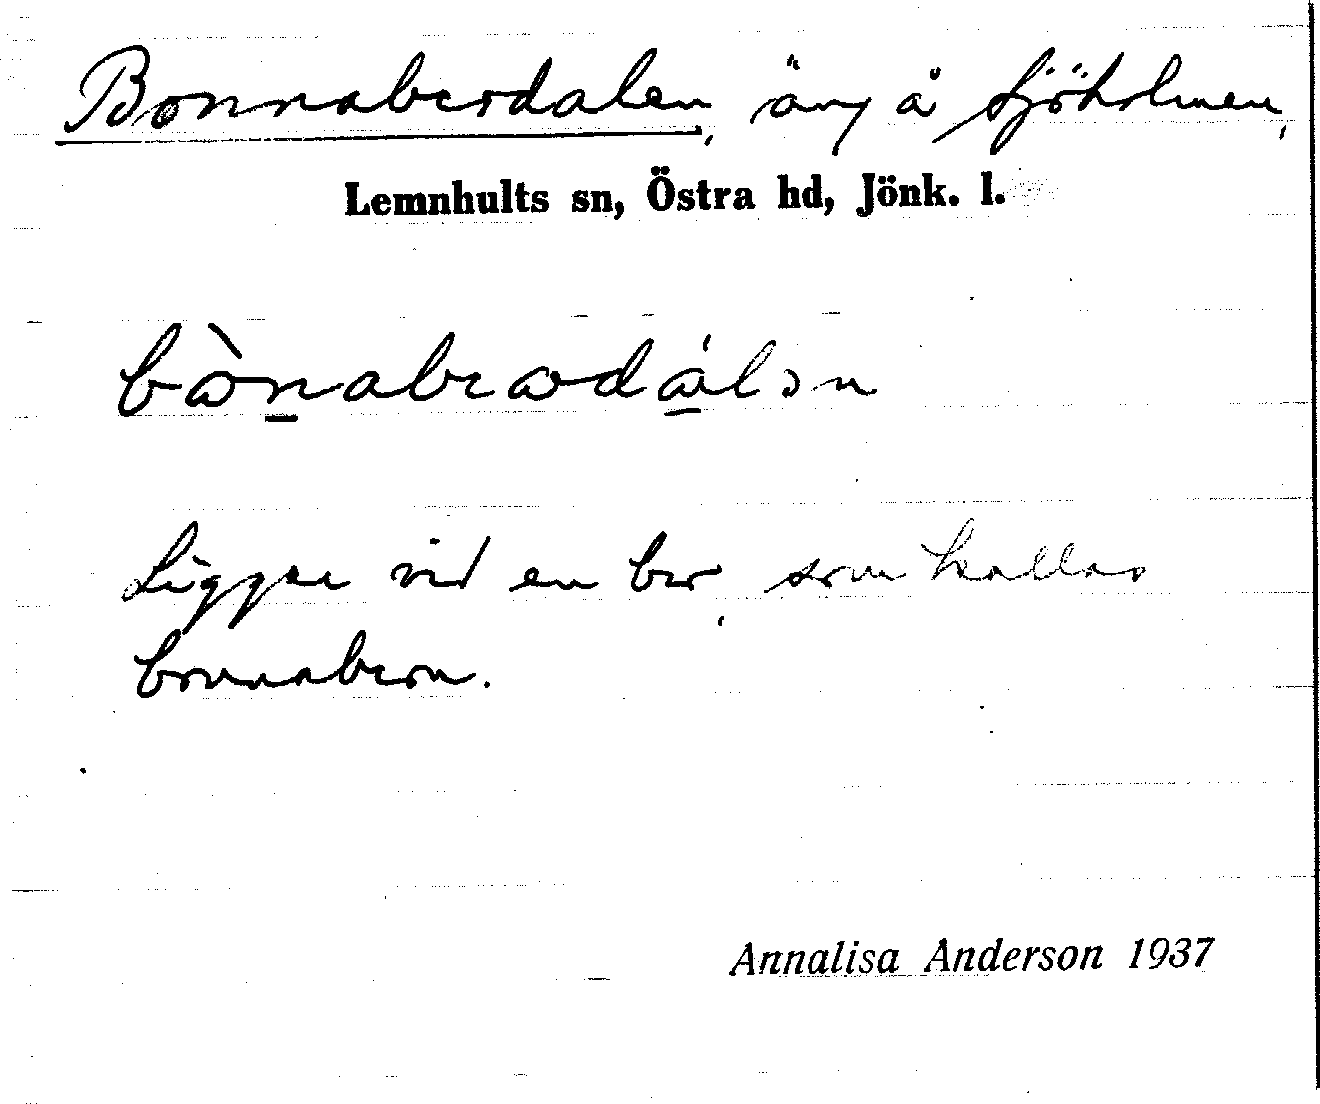 Bonnabrodalen, äng å Sjöholmen,
Lemnhults sn, Östra hd, Jönk. l.
Ligger vid en bro, som kallas
bonnabron.
Annalisa Anderson 1937